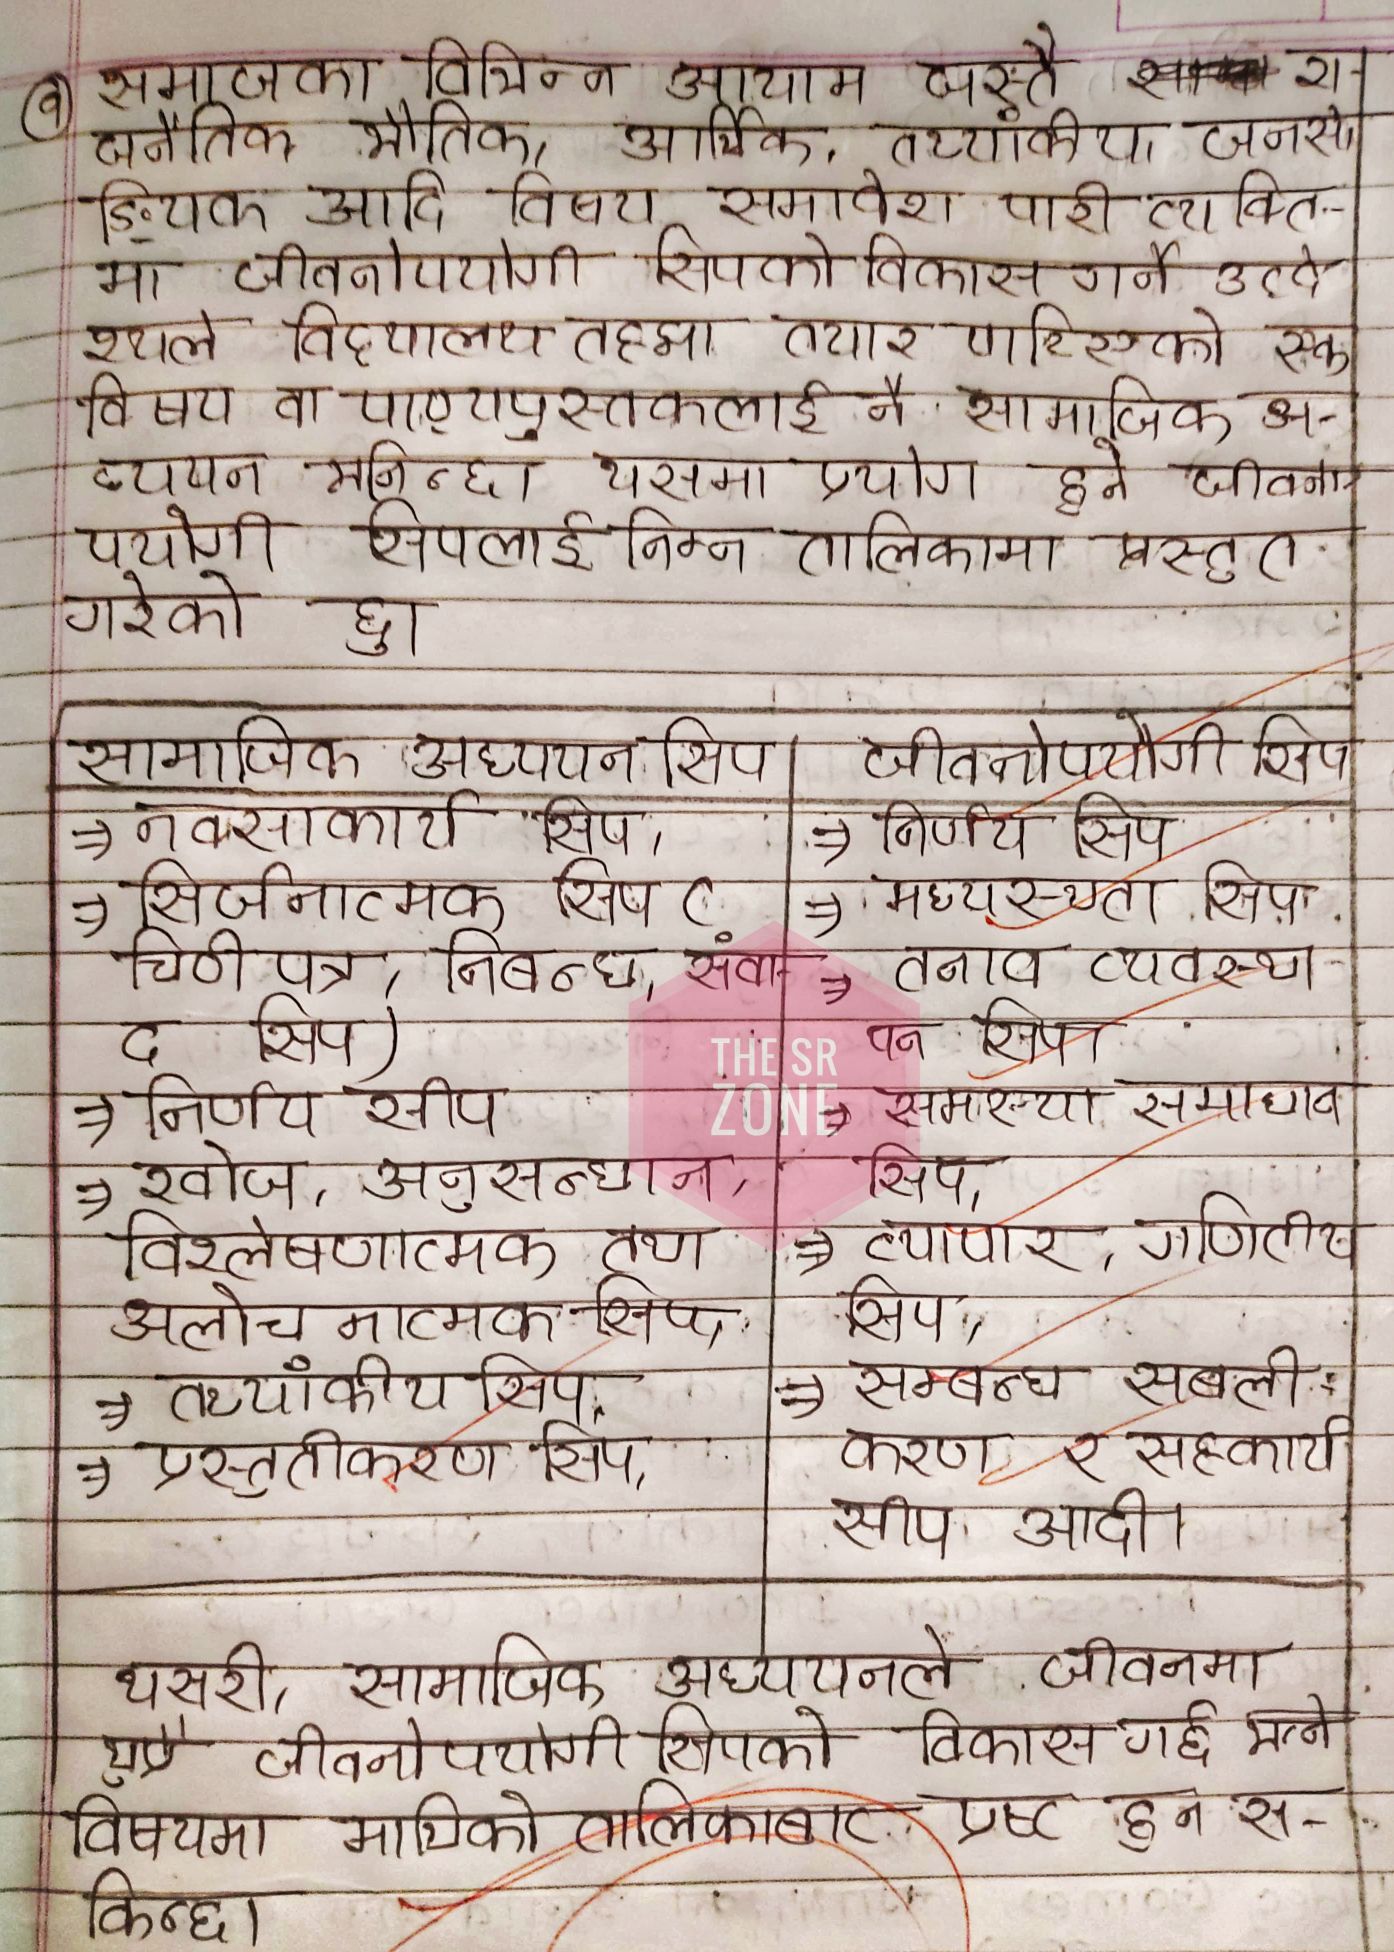 १) समाजका विभिन्न आयाम जस्तै रा-
जनैतिक, भौतिक, आर्थिक, तथ्यांकीय, जनसाे
ङ्ख्यिक आदि विषय समावेश पारी व्यक्ति-
मा जीवनोपयोगी सिपको विकास गर्ने उद्दे
श्यले विद्यालय तहमा तयार पारिएको एक
विषय वा पाठ्यपुस्तकलाई नै सामाजिक अ-
ध्ययन भनिन्छ। यसमा प्रयोग हुने जीवनो
पयोगी सिपलाई निम्न तालिकामा प्रस्तुत
गरेको छु।
सामाजिक अध्ययन सिप
⇒ नक्साकार्य सिप,
⇒ सिर्जनात्मक सिप (
चिठी पत्र, निबन्ध, संवा-
द सिप)
⇒ निर्णय सीप
⇒ खोज, अनुसन्धान,
विश्लेषणात्मक तथा
अलोचनात्मक सिप,
⇒ तथ्याँकीय सिप,
⇒ प्रस्तुतीकरण सिप,
जीवनोपयोगी सिप
⇒ निर्णय सिप
⇒ मध्यस्थता सिप
⇒ तनाव व्यवस्था-
पन सिप,
⇒ समास्या समाधान
सिप,
⇒ व्यापार, गणितीय
सिप,
⇒ सम्बन्ध सबली-
करण र सहकार्य
सीप आदी।
THE SR
ZONE
यसरी, सामाजिक अध्ययनले जीवनमा
जीवनोपयोगी सिपको विकास गर्छ भन्ने
विषयमा माथिको तालिकाबाट प्रष्ट हुन स-
किन्छ।